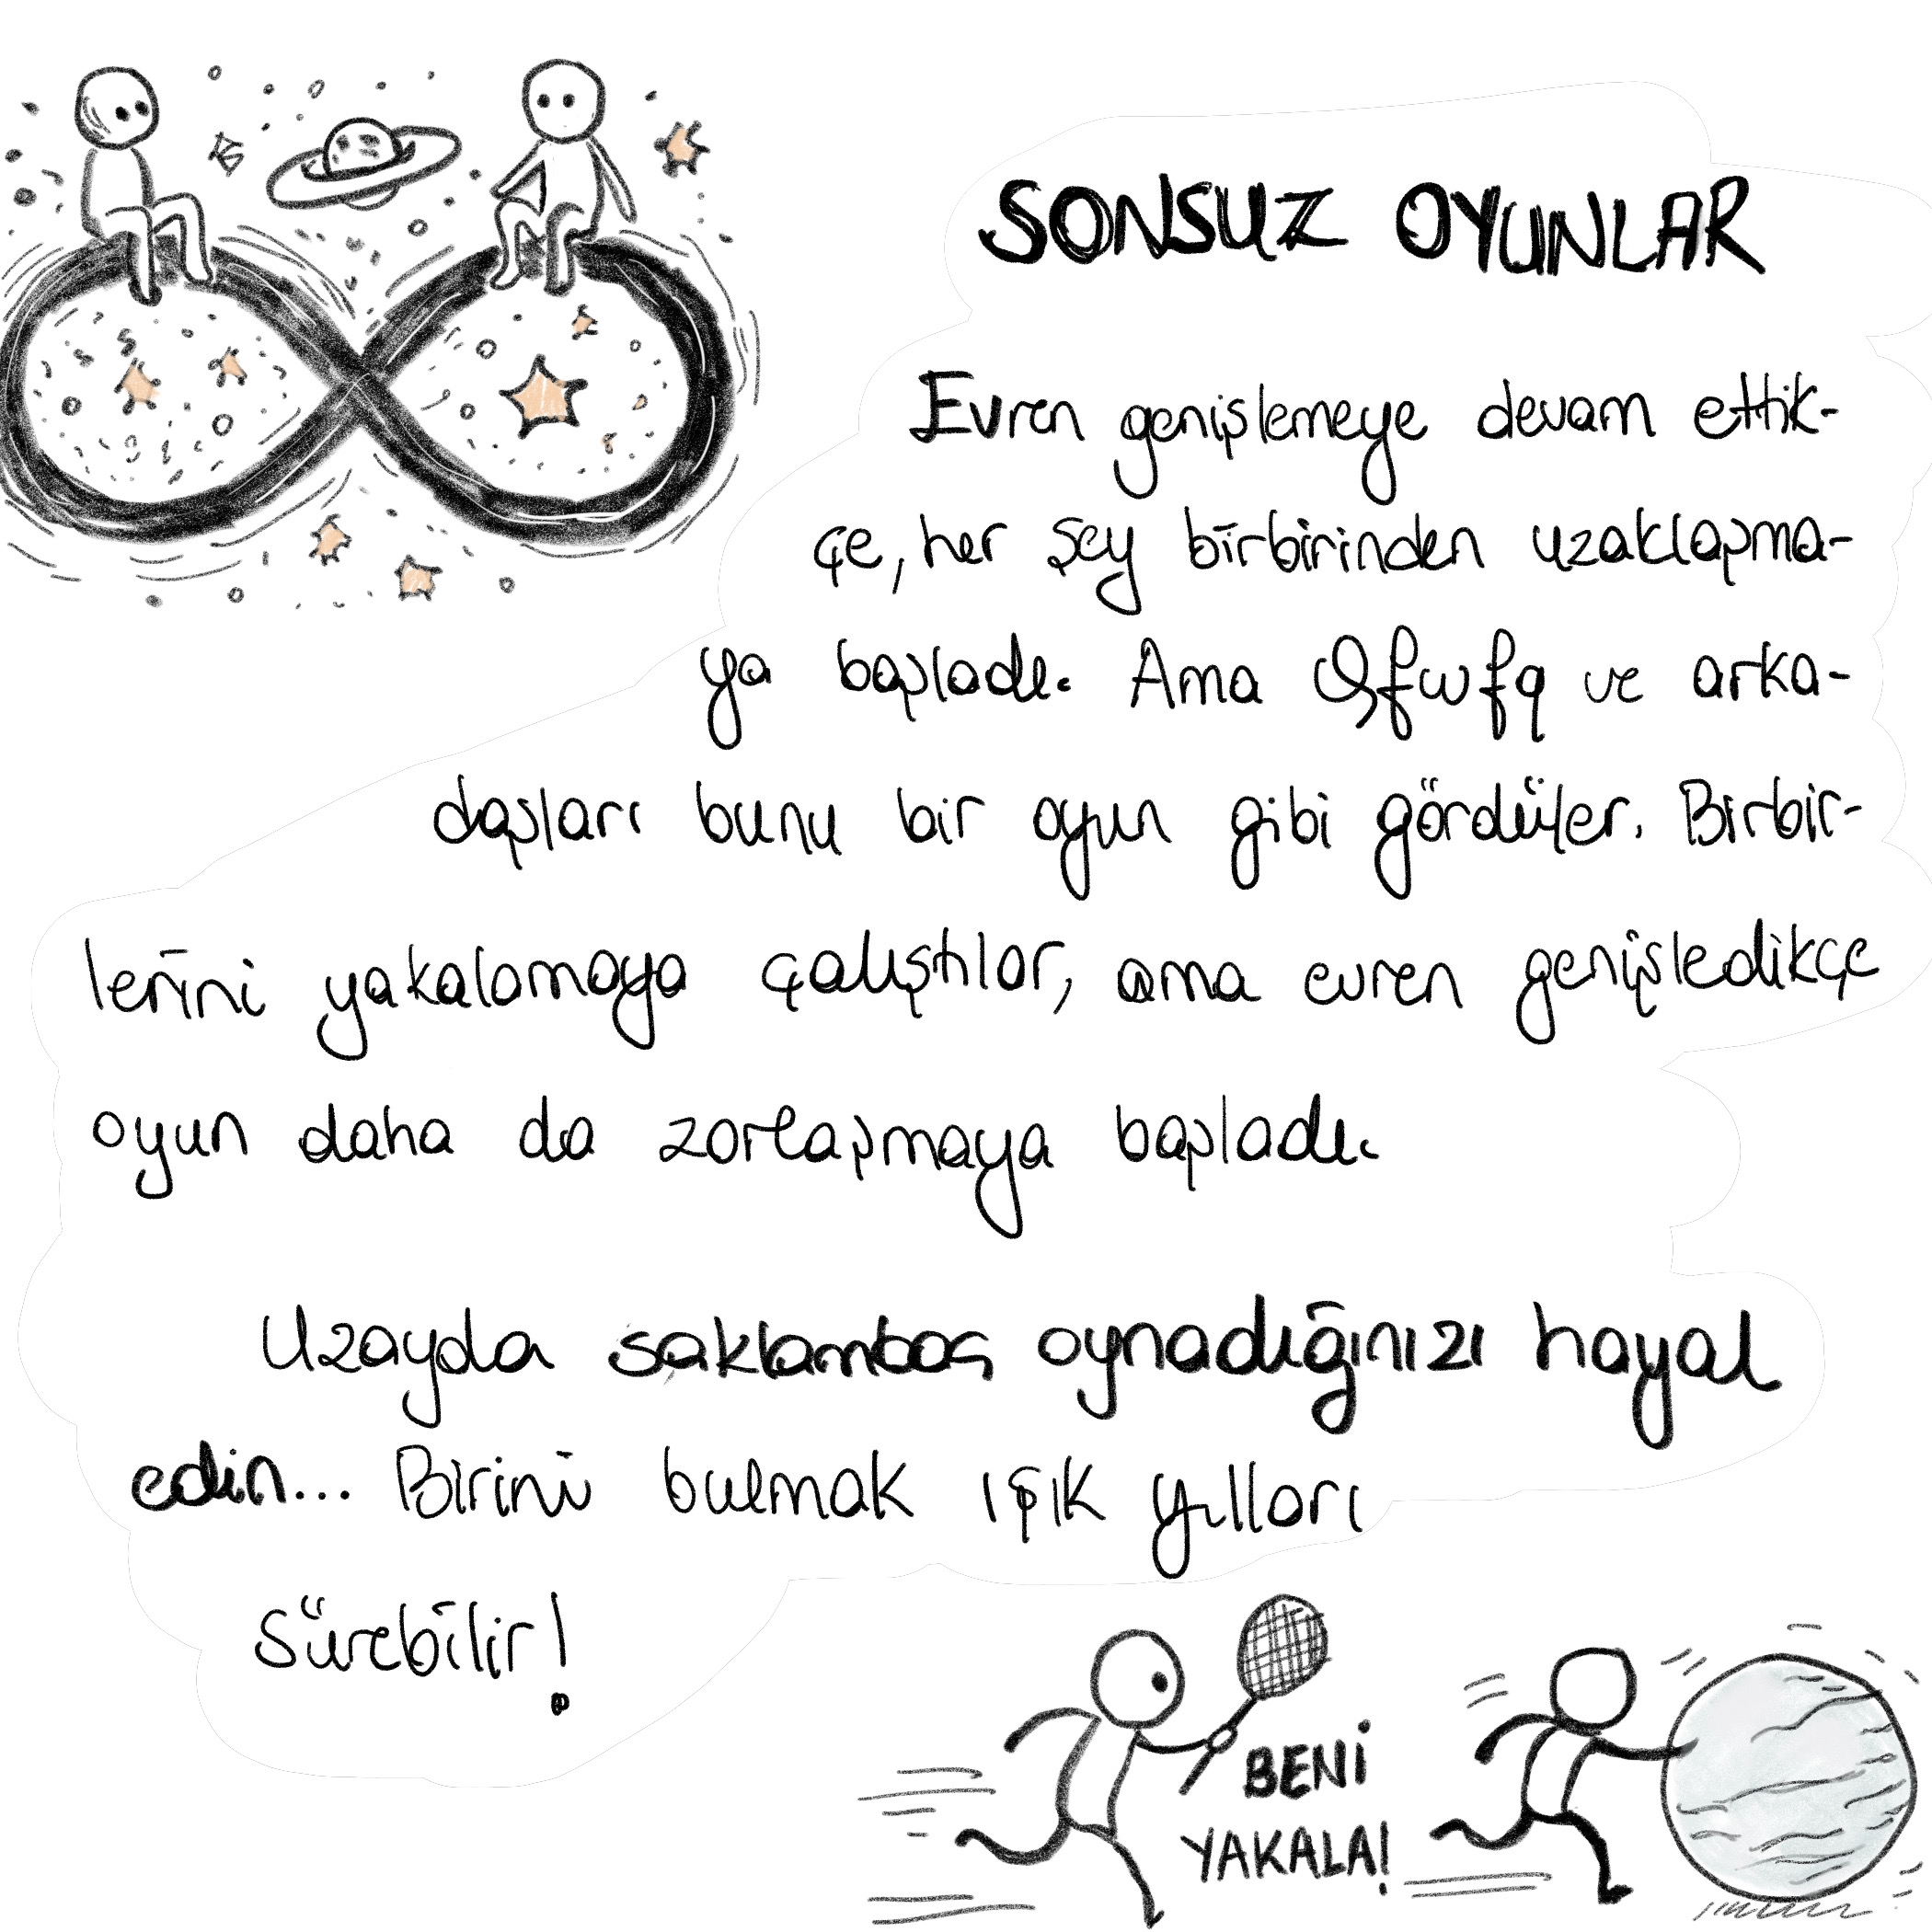 SONSUZ OYUNLAR
Evren genişlemeye devam ettik-
çe, her şey birbirinden uzaklaşma-
ya başladı. Ama Qfwfq ve arka-
daşları bunu bir oyun gibi gördüler. Birbir-
lerini yakalamaya çalıştılar, ama evren genişledikçe
oyun daha da zorlaşmaya başladı.
Uzayda saklambaç oynadığınızı hayal
edin... Birini bulmak ışık yılları
sürebilir!
BENİ
YAKALA!